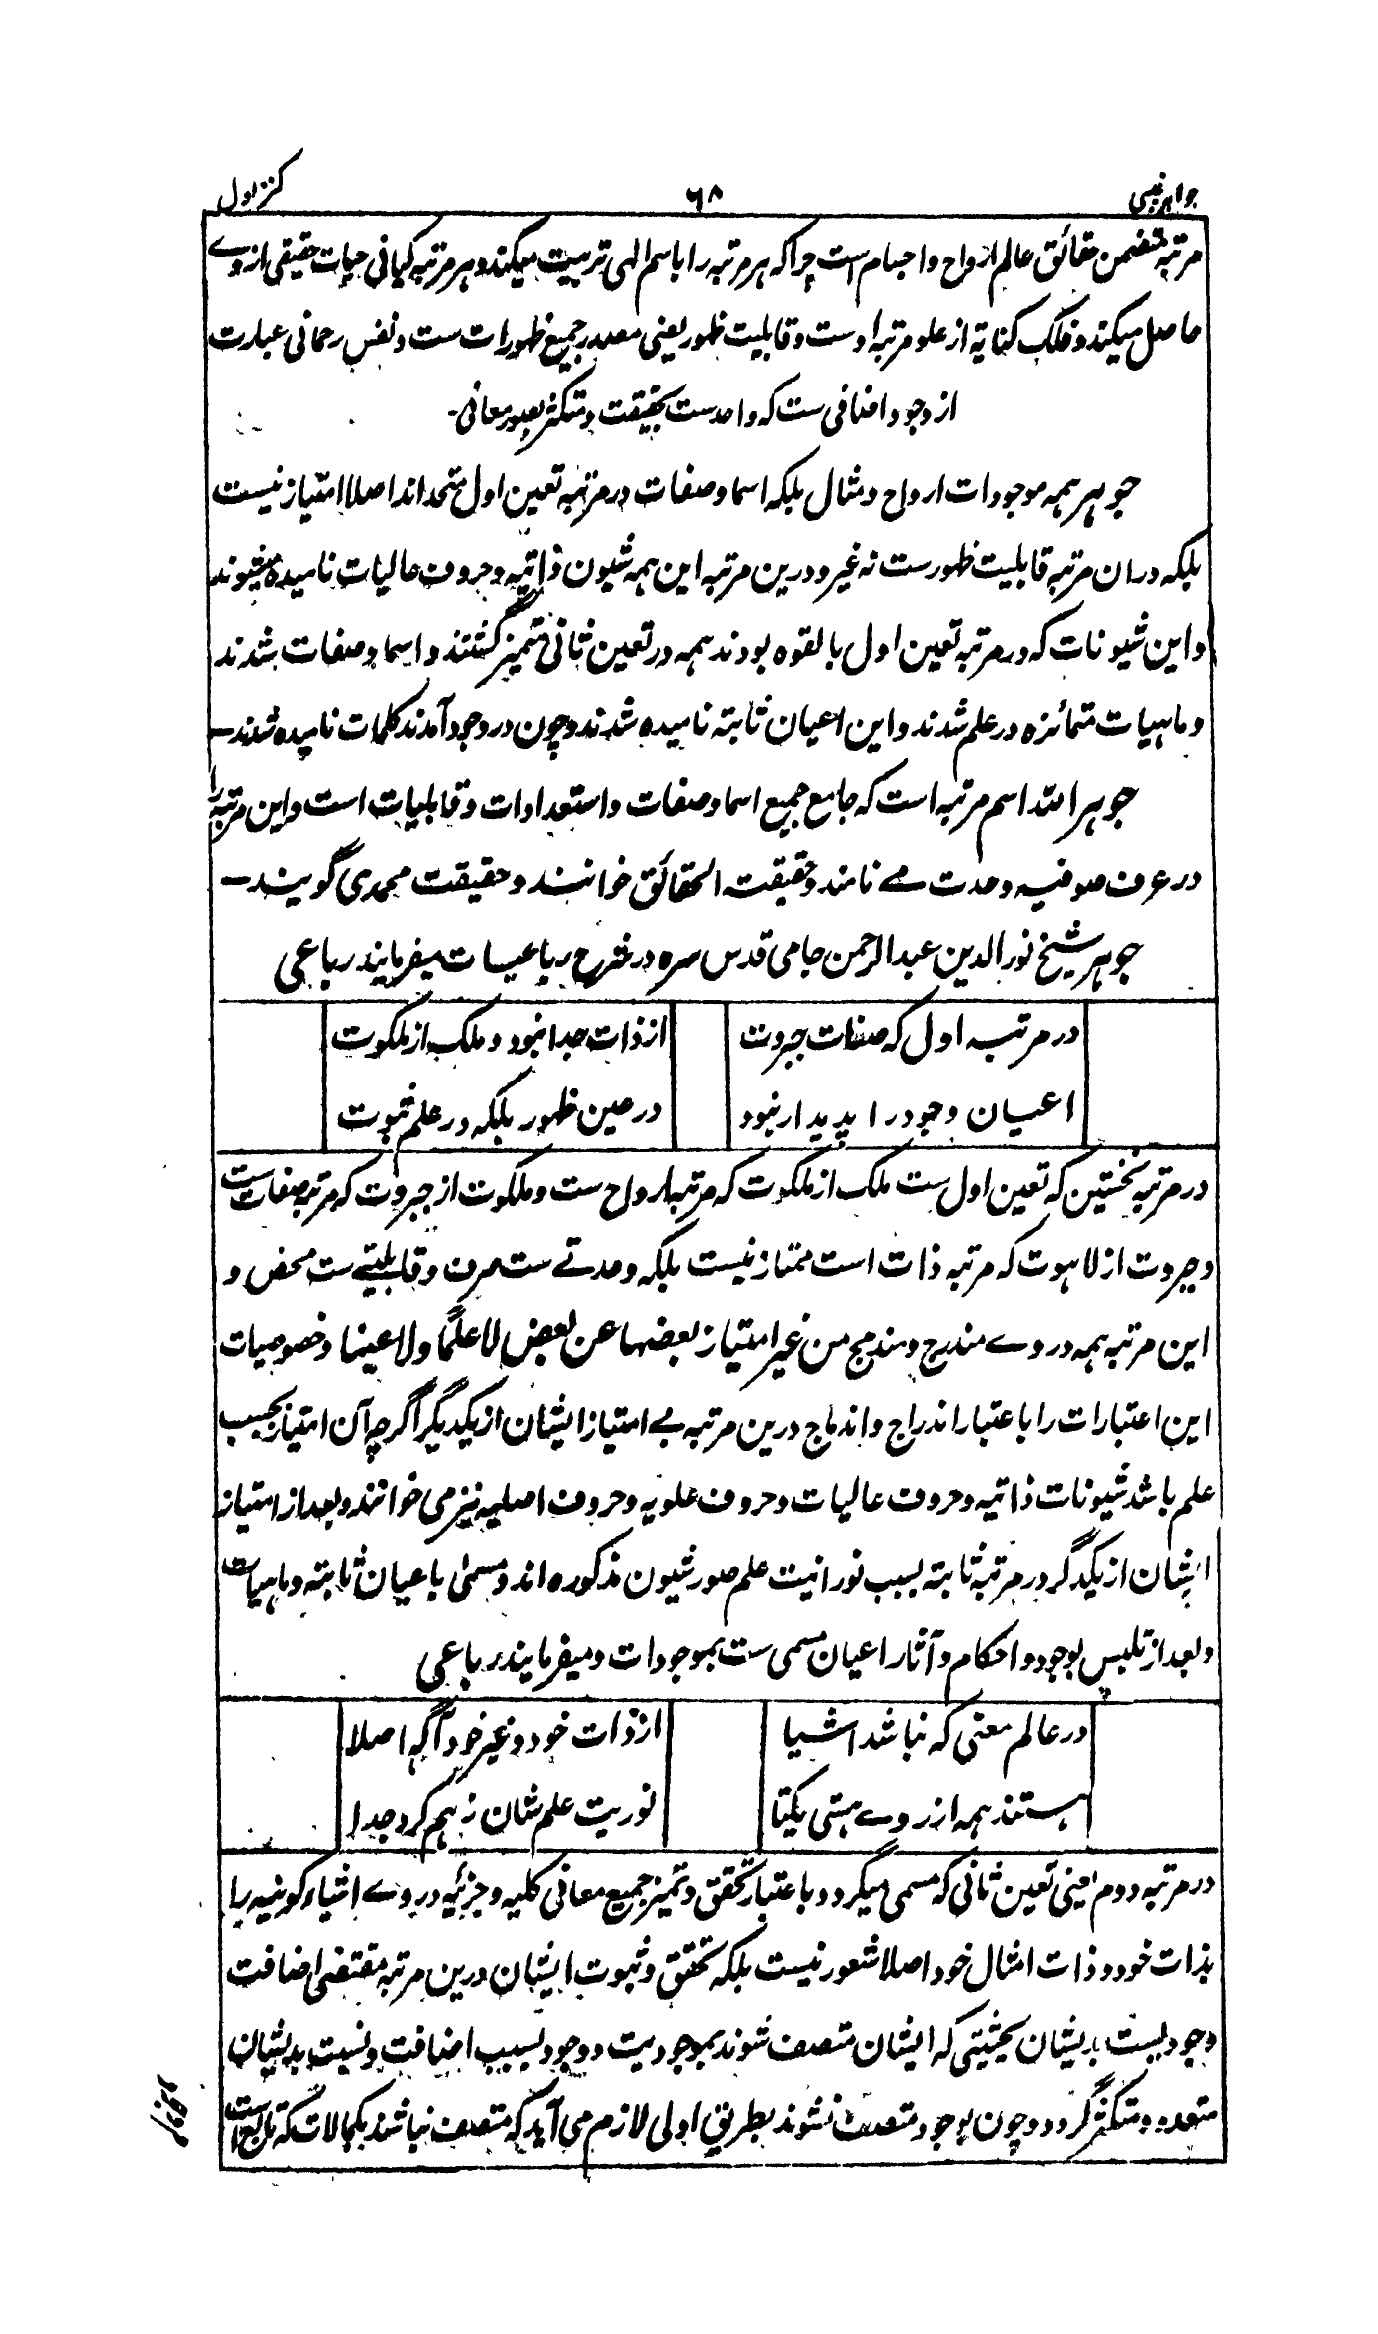 جواهر غیبی
۶۸
کنز اول
مرتبه متضمن حقائق عالم ارواح و اجسام است چرا که هر مرتبه را باسم الهی تربیت میکند و هر مرتبه کیانی حیات حقیقی از وے
حاصل میکند و فلک کنایة از علو مرتبه اوست و قابلیت ظهور یعنی مصدر جمیع ظهورات ست و نفس رحمانی عبارت
از وجود اضافی ست که واحدست بحقیقت و متکثر بصور معانی۔
جوهر همه موجودات ارواح و مثال بلکه اسما و صفات در مرتبه تعین اول متحد اند اصلا امتیاز نیست
بلکه دران مرتبه قابلیت ظهورست نه غیر و درین مرتبه این همه شیون ذاتیه و حروف عالیات نامیده میشوند
و این شیونات که در مرتبه تعین اول بالقوه بودند همه در تعین ثانی متمیز گشتند و اسما و صفات شدند
و ماهیات متمائزه در علم شدند و این اعیان ثابته نامیده شدند و چون در وجود آمدند کلمات نامیده شدند۔
جوهر الله اسم مرتبه است که جامع جمیع اسما و صفات و استعدادات و قابلیات است و این مرتبه را
در عرف صوفیه وحدت مے نامند و حقیقت الحقائق خوانند و حقیقت محمدی گویند۔
جوهر شیخ نور الدین عبد الرحمن جامی قدس سره در شرح رباعیات میفرمایند رباعی
در مرتبه اول که صفات جبروت
از ذات جدا نبود و ملک از ملکوت
اعیان وجود را پدیدار نبود
در عین ظهور بلکه در علم ثبوت
در مرتبه نخستین که تعین اول ست ملک از ملکوت که مرتبه ارواح ست و ملکوت از جبروت که مرتبه صفات ست
و جبروت از لاهوت که مرتبه ذات است ممتاز نیست بلکه وحدتے ست صرف و قابلیتے ست محض و
این مرتبه همه در وے مندرج و مندمج من غیر امتیاز بعضها عن بعض لا علمًا ولا عینا و خصوصیات
این اعتبارات را باعتبار اندراج و اندماج درین مرتبه بے امتیاز ایشان از یکدیگر اگرچه آن امتیاز بحسب
علم باشد شیونات ذاتیه و حروف عالیات و حروف علویه و حروف اصلیه نیز می خوانند و بعد از امتیاز
ایشان از یکدگر در مرتبه ثابته بسبب نورانیت علم صور شیون مذکوره اند و مسمیٰ باعیان ثابته و ماهیات
و بعد از تلبس بوجود و احکام و آثار اعیان مسمی ست بموجودات و میفرمایند رباعی
در عالم معنی که نباشد اشیا
از ذات خود و غیر خود آگه اصلا
هستند همه از روے هستی یکتا
نوریت علم شان ز هم کرد جدا
در مرتبه دوم یعنی تعین ثانی که مسمی میگردد باعتبار تحقق و تمیز جمیع معانی کلیه و جزئیه در وے اشیاء کونیه را
بذات خود و ذات امثال خود اصلا شعور نیست بلکه تحقق و ثبوت ایشان درین مرتبه مقتضی اضافت
وجود نیست بدیشان بحیثیتی که ایشان متصف شوند بموجودیت و وجود بسبب اضافت و نسبت بدیشان
متعدد و متکثر گردد و چون بوجود متصف نشوند بطریق اولی لازم می آید که متصف نباشند بکمالات که تابع است